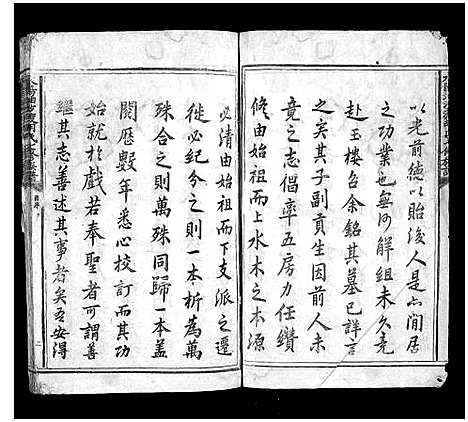 以光前德以貽後人是亦間居
之功業也無何解組未久竟
赴玉樓召余銘其墓已詳言
之矣其子副貢生因前人未
竟之志倡率五房力任纘
修由始祖而上水木之本源
必清由始祖而下支派之遷
徙必紀分之則一本析為萬
殊合之則萬殊同歸一本蓋
閱歷數年悉心校訂而其功
始就於戲若奉聖者可謂善
繼其志善述其事者矣吾安得
序
二